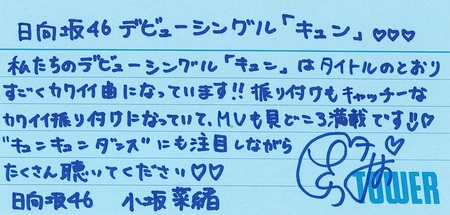 日向坂46 デビューシングル「キュン」♡♡♡
私たちのデビューシングル「キュン」はタイトルのとおり
すごくカワイイ曲になっています!! 振り付けもキャッチーな
カワイイ振り付けになっていて、M.Vも見どころ満載です!!♡
"キュンキュンダンス"にも注目しながら
たくさん聴いてください♡♡
日向坂46 小坂菜緒
TOWER